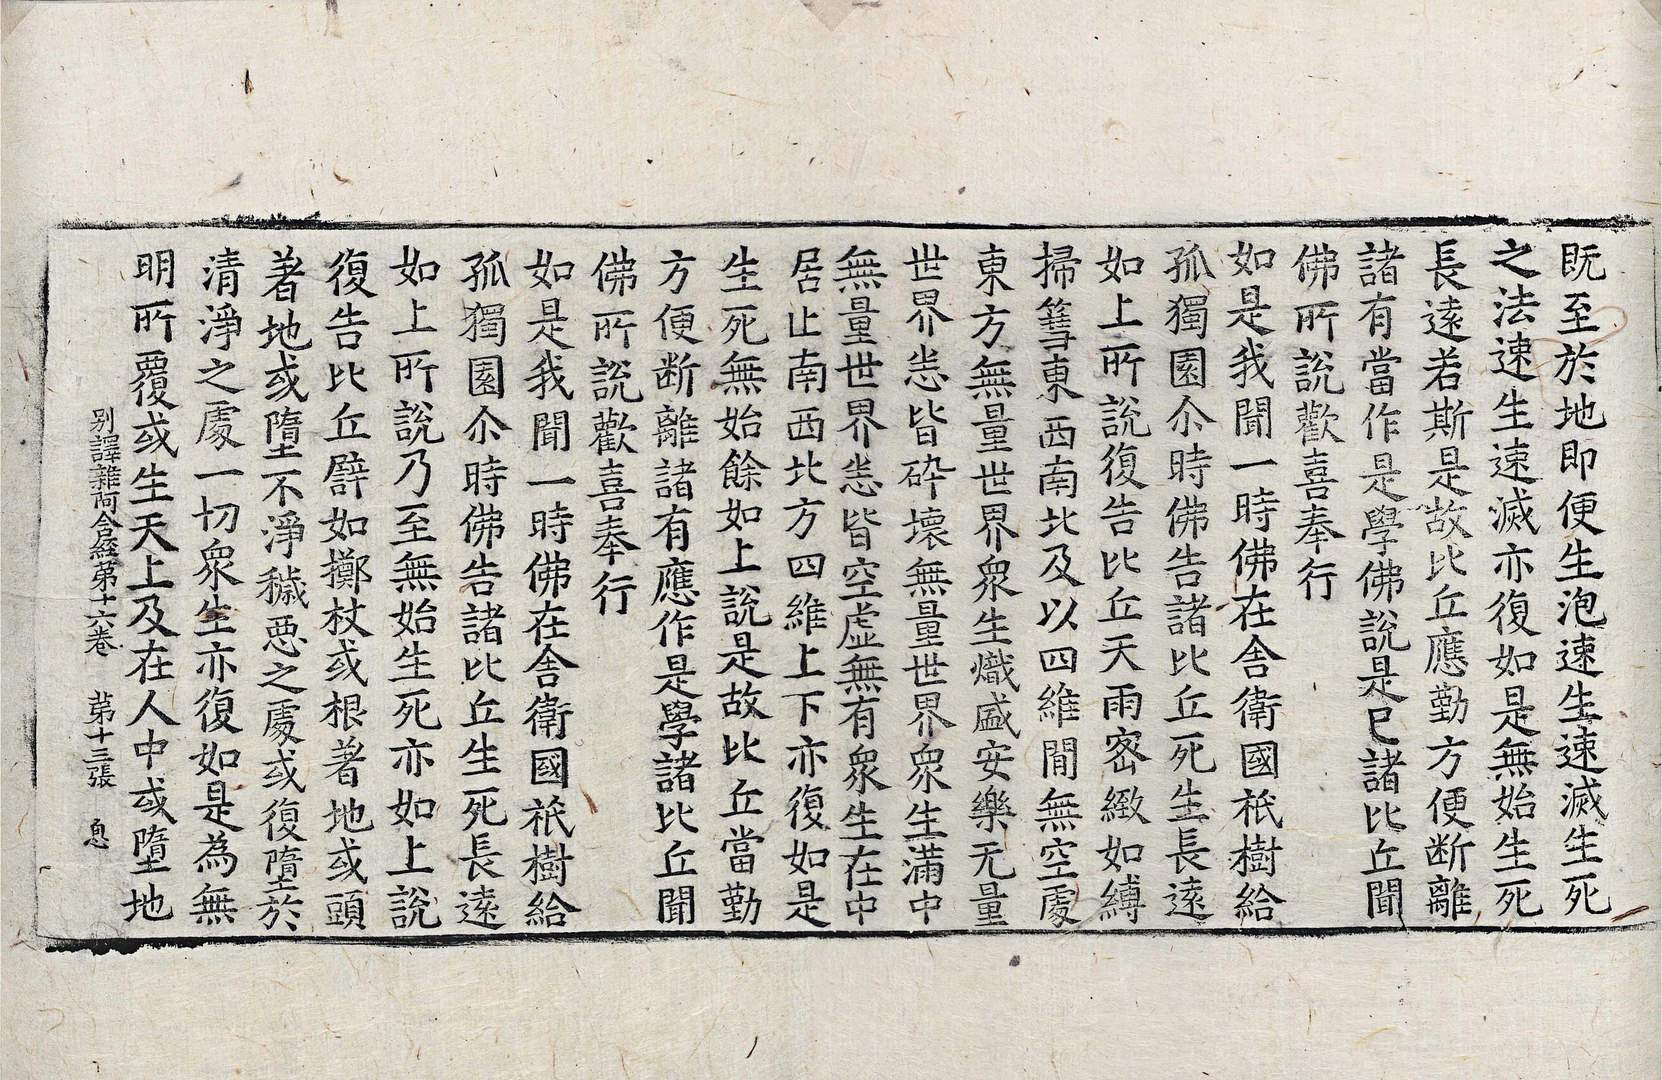 既至於地即便生泡速生速滅生死
之法速生速滅亦復如是無始生死
長遠若斯是故比丘應勤方便断離
諸有當作是學佛說是已諸比丘聞
佛所說歡喜奉行
如是我聞一時佛在舍衛國祇樹給
孤獨園尒時佛告諸比丘死生長遠
如上所說復告比丘天雨密緻如縛
掃篲東西南北及以四維間無空處
東方無量世界衆生熾盛安樂无量
世界悉皆碎壞無量世界衆生滿中
無量世界悉皆空虛無有衆生在中
居止南西北方四維上下亦復如是
生死無始餘如上說是故比丘當勤
方便断離諸有應作是學諸比丘聞
佛所說歡喜奉行
如是我聞一時佛在舍衛國祇樹給
孤獨園尒時佛告諸比丘生死長遠
如上所說乃至無始生死亦如上說
復告比丘譬如擲杖或根著地或頭
著地或墮不淨穢惡之處或復墮於
清淨之處一切衆生亦復如是為無
明所覆或生天上及在人中或墮地
别譯雜阿含經第十六卷 第十三張 息